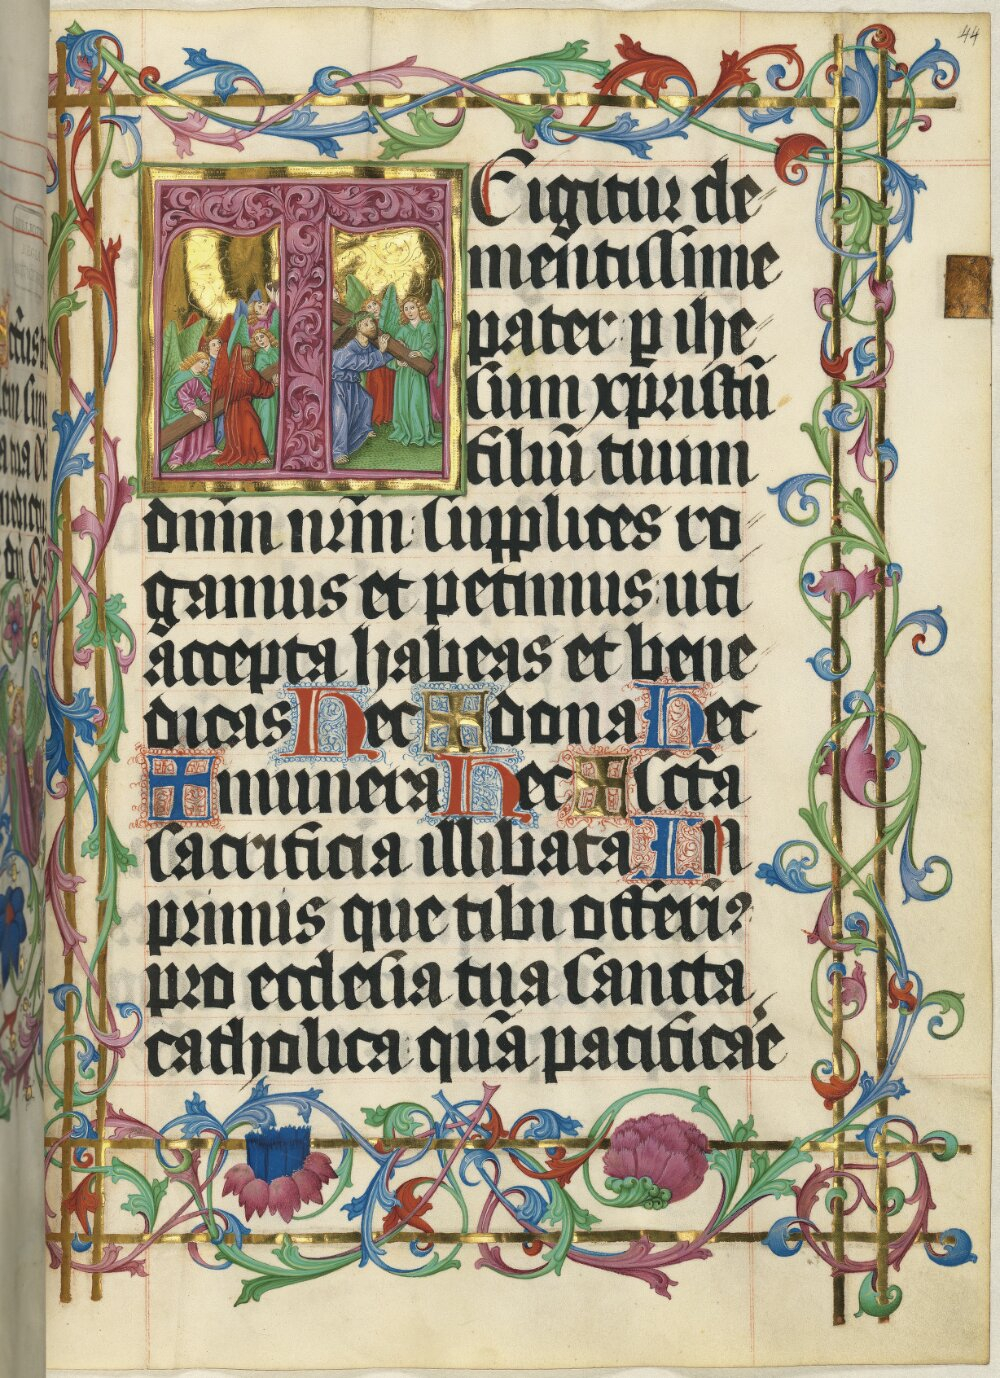 44
TE igitur cle
mentissime
pater p ihe
sum xpristū
filiū tuum
dnm̄ nr̄m: supplices ro
gamus et petimus: uti
accepta habeas et bene
dicas Hec ✠ dona Hec
✠ munera Hec ✠ sccta
sacrificia illibata In
primis que tibi offerim⁹
pro ecclesia tua sancta
catholica: quā pacificare